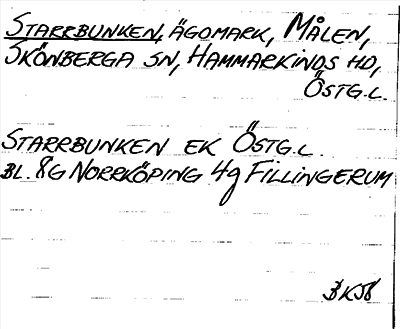 STARRBUNKEN, ÄGOMARK, MÅLEN,
SKÖNBERGA SN, HAMMARKINDS HD,
ÖSTG.L.
STARRBUNKEN EK ÖSTG.L.
BL. 8G NORRKÖPING 4g FILLINGERUM